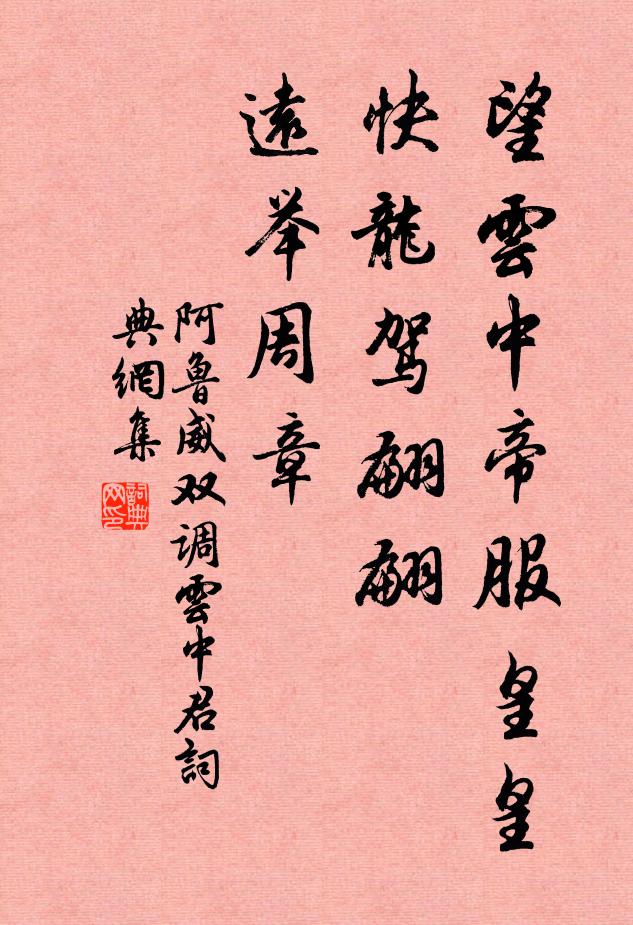 望雲中帝服皇皇
快龍駕翩翩
遠举周章
阿鲁威双调雲中君詞
典網集
詞典网印